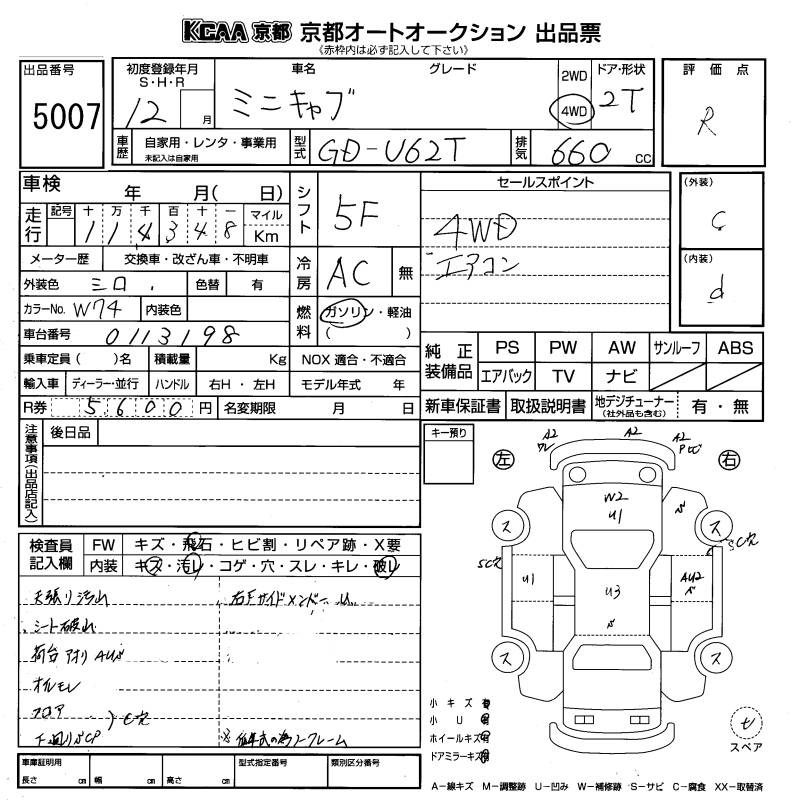 KCAA 京都 京都オートオークション 出品票
《赤枠内は必ず記入して下さい》
出品番号
5007
初度登録年月
S・H・R
12 月
車名
ミニキャブ
グレード
2WD
4WD
ドア・形状
2T
評価点
R
車歴
自家用・レンタ・事業用
未記入は自家用
型式
GD-U62T
排気
660 cc
車検 年 月( 日)
走行
記号 十 万 千 百 十 一 マイル
1 1 4 3 4 8 Km
シフト
5F
セールスポイント
4WD
エアコン
(外装)
C
(内装)
d
メーター歴 交換車・改ざん車・不明車
冷房
AC 無
外装色 シロ 色替 有
カラーNo. W74 内装色
燃料
ガソリン・軽油
( )
車台番号 0113198
乗車定員( )名 積載量 Kg NOX 適合・不適合
輸入車 ディーラー・並行 ハンドル 右H ・ 左H モデル年式 年
R券 5600 円 名変期限 月 日
純正装備品
PS PW AW サンルーフ ABS
エアバック TV ナビ
新車保証書 取扱説明書 地デジチューナー
(社外品も含む)
有・無
注意事項(出品店記入)
後日品
キー預り
左
右
A2
A2
A2
W2
U1
U1
U3
AU2
SC穴
SC穴
ス
ス
ス
ス
検査員記入欄
FW キズ・飛石・ヒビ割・リペア跡・X要
内装 キズ・汚レ・コゲ・穴・スレ・キレ・破レ
天張り汚レ
シート破レ
荷台アオリAU
オイルモレ
フロア
下廻りサCP
C穴
右Fサイドメンバー
小キズ有
小U有
ホイールキズ有
ドアミラーキズ有
スペア
車庫証明用
長さ cm 幅 cm 高さ cm
型式指定番号
類別区分番号
A−線キズ M−調整跡 U−凹み W−補修跡 S−サビ C−腐食 XX−取替済